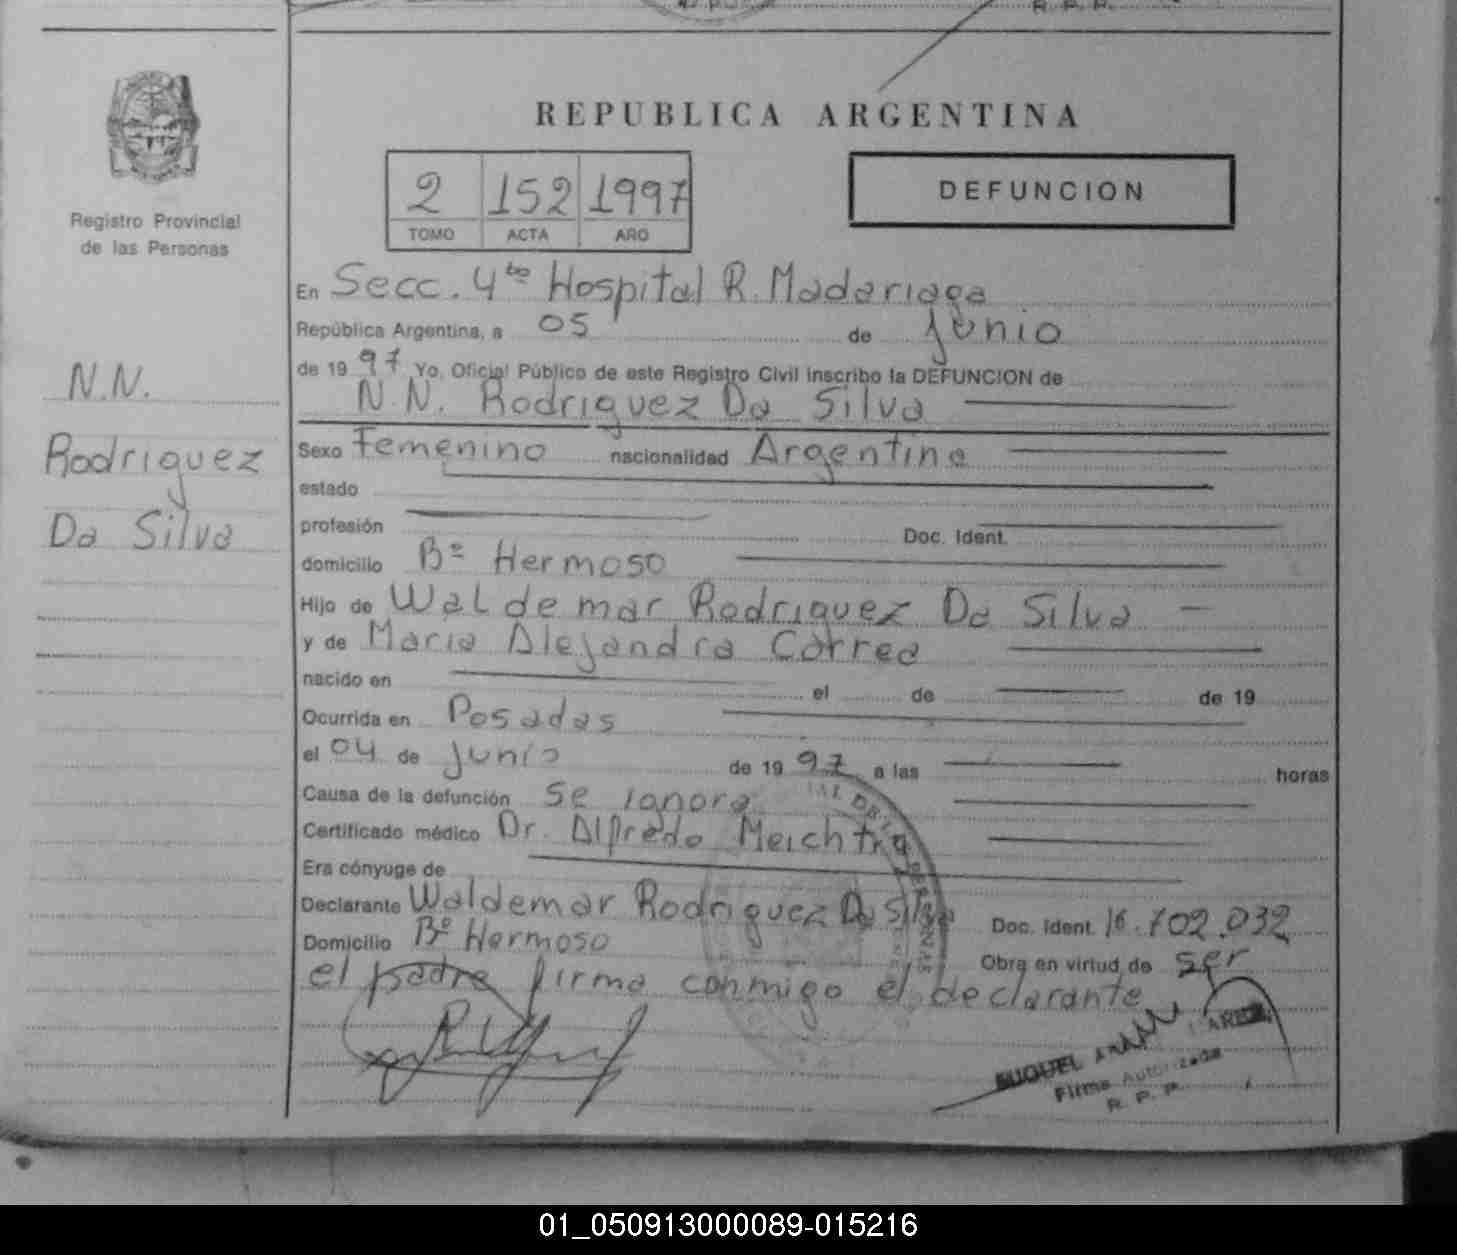 R. P. P.
REPUBLICA ARGENTINA
Registro Provincial
de las Personas
2 152 1997
TOMO ACTA AÑO
DEFUNCION
En Secc. 4ta Hospital R. Madariaga
República Argentina, a 05 de Junio
de 19 97 Yo, Oficial Público de este Registro Civil inscribo la DEFUNCION de
N.N. Rodriguez Da Silva
N.N.
Rodriguez
Da Silva
Sexo Femenino nacionalidad Argentina
estado
profesión Doc. Ident.
domicilio Bº Hermoso
Hijo de Waldemar Rodriguez Da Silva
y de Maria Alejandra Correa
nacido en el de de 19
Ocurrida en Posadas
el 04 de Junio de 19 97 a las horas
Causa de la defunción Se ignora
Certificado médico Dr. Alfredo Meichtry
Era cónyuge de
Declarante Waldemar Rodriguez Da Silva Doc. Ident. 16.702.032
Domicilio Bº Hermoso Obra en virtud de ser
el padre firma conmigo el declarante
Firma Autorizada
R. P. P.
01_050913000089-015216